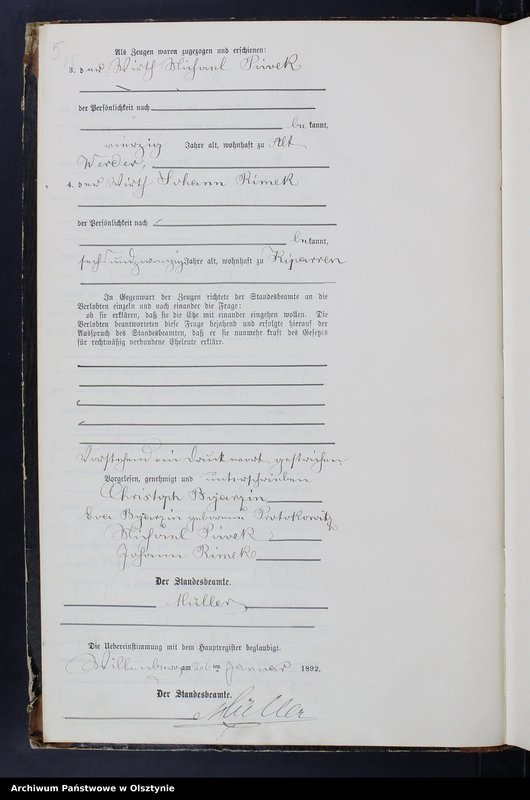 5
Als Zeugen waren zugezogen und erschienen:
3. der Wirth Michael Puvek
der Persönlichkeit nach
be kannt,
vierzig Jahre alt, wohnhaft zu Alt
Werder,
4. der Wirth Johann Rimek
der Persönlichkeit nach
be kannt,
sechsundzwanzig Jahre alt, wohnhaft zu Kiparren
In Gegenwart der Zeugen richtete der Standesbeamte an die
Verlobten einzeln und nach einander die Frage:
ob sie erklären, daß sie die Ehe mit einander eingehen wollen. Die
Verlobten beantworteten diese Frage bejahend und erfolgte hierauf der
Ausspruch des Standesbeamten, daß er sie nunmehr kraft des Gesetzes
für rechtmäßig verbundene Eheleute erkläre.
Vorstehend ein Druckwort gestrichen.
Vorgelesen, genehmigt und unterschrieben
Christoph Bojarzin
Eva Bojarzin geborene Protokowitz
Michael Puvek
Johann Rimek
Der Standesbeamte.
Müller
Die Uebereinstimmung mit dem Hauptregister beglaubigt.
Willenberg, am 26 ten Januar 1892.
Der Standesbeamte.
Müller
Archiwum Państwowe w Olsztynie